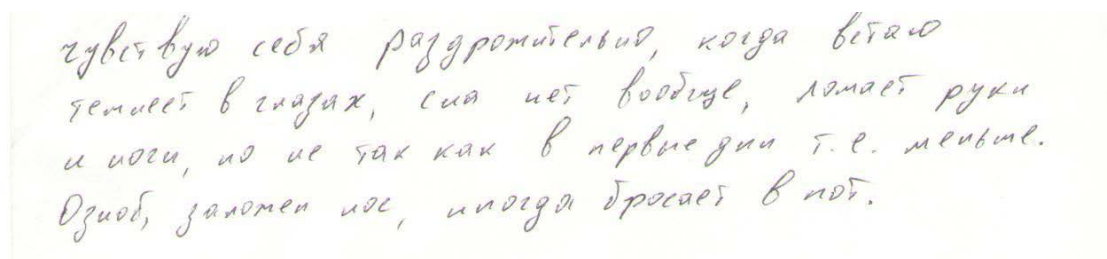 чувствую себя раздрожительно, когда встаю
темнеет в глазах, сна нет вообще, ломает руки
и ноги, но не так как в первые дни т.е. меньше.
Озноб, заложен нос, иногда бросает в пот.